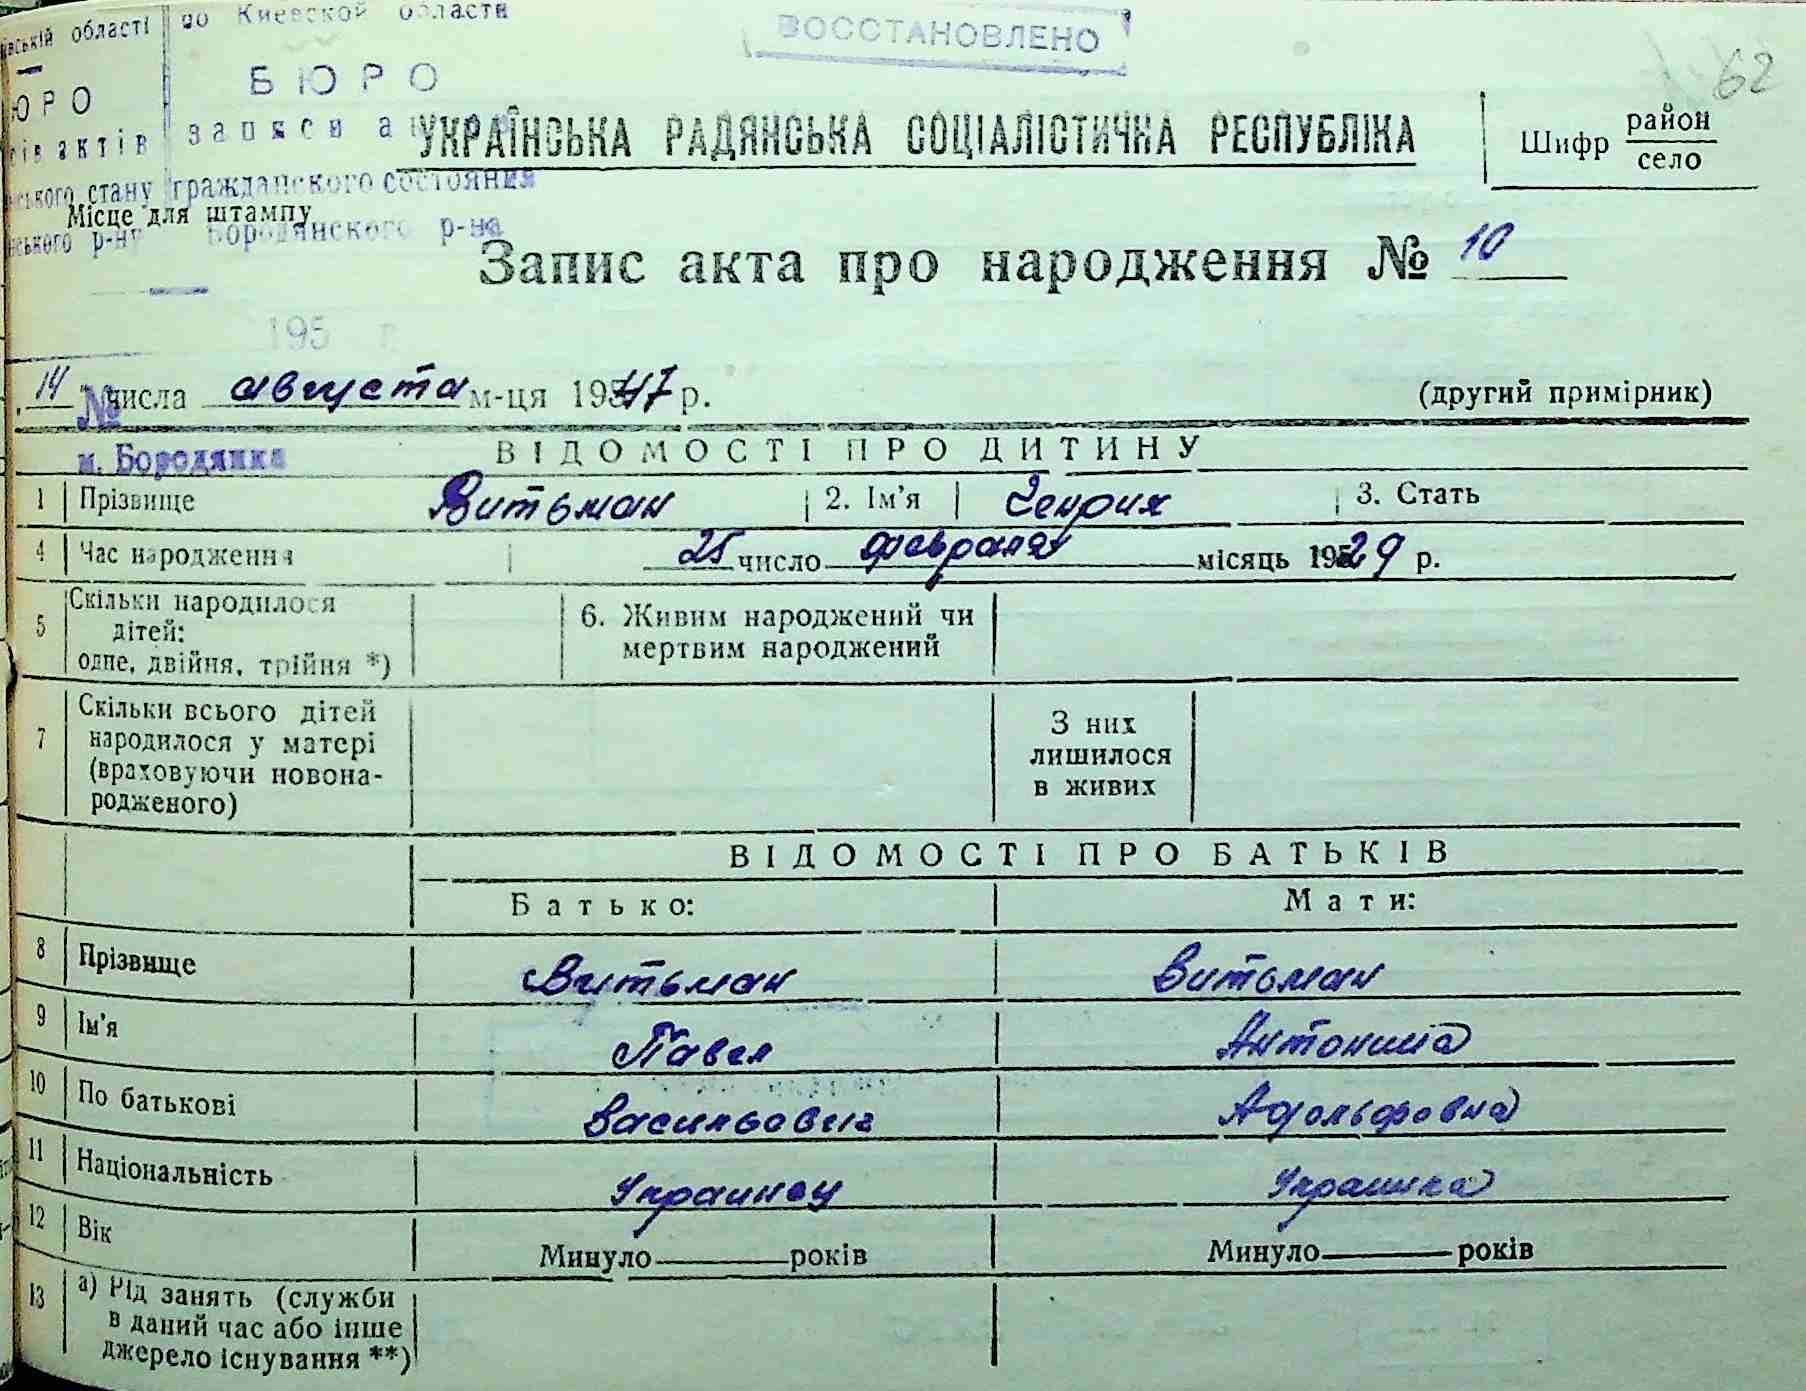 ївській області по Киевской области
ВОССТАНОВЛЕНО
62
ЮРО БЮРО
актів записи
УКРАЇНСЬКА РАДЯНСЬКА СОЦІАЛІСТИЧНА РЕСПУБЛІКА
Шифр район
село
ського стану гражданского состояния
Місце для штампу
нського р-ну Бородянского р-на
Запис акта про народження № 10
195 г.
14 числа августа м-ця 1947 р.
(другий примірник)
№
м. Бородянка
ВІДОМОСТІ ПРО ДИТИНУ
1 Прізвище Витьман 2. Ім'я Генрих 3. Стать
4 Час народження 25 число февраля місяць 1929 р.
5 Скільки народилося
дітей:
одне, двійня, трійня *)
6. Живим народжений чи
мертвим народжений
7 Скільки всього дітей
народилося у матері
(враховуючи новона-
родженого)
З них
лишилося
в живих
ВІДОМОСТІ ПРО БАТЬКІВ
Батько: Мати:
8 Прізвище Витьман Витьман
9 Ім'я Павел Антонина
10 По батькові Васильович Адольфовна
11 Національність Украинец Украинка
12 Вік Минуло років Минуло років
13 а) Рід занять (служби
в даний час або інше
джерело існування **)